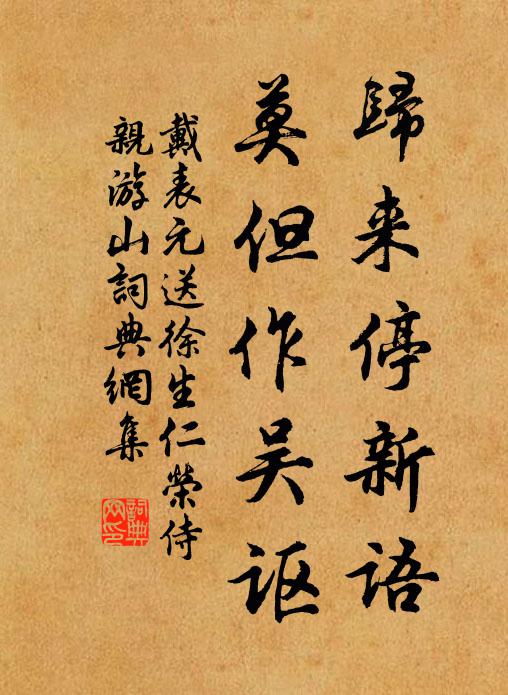 歸来停新语
莫但作吴讴
戴表元送徐生仁榮侍
親游山詞典網集
詞典网印